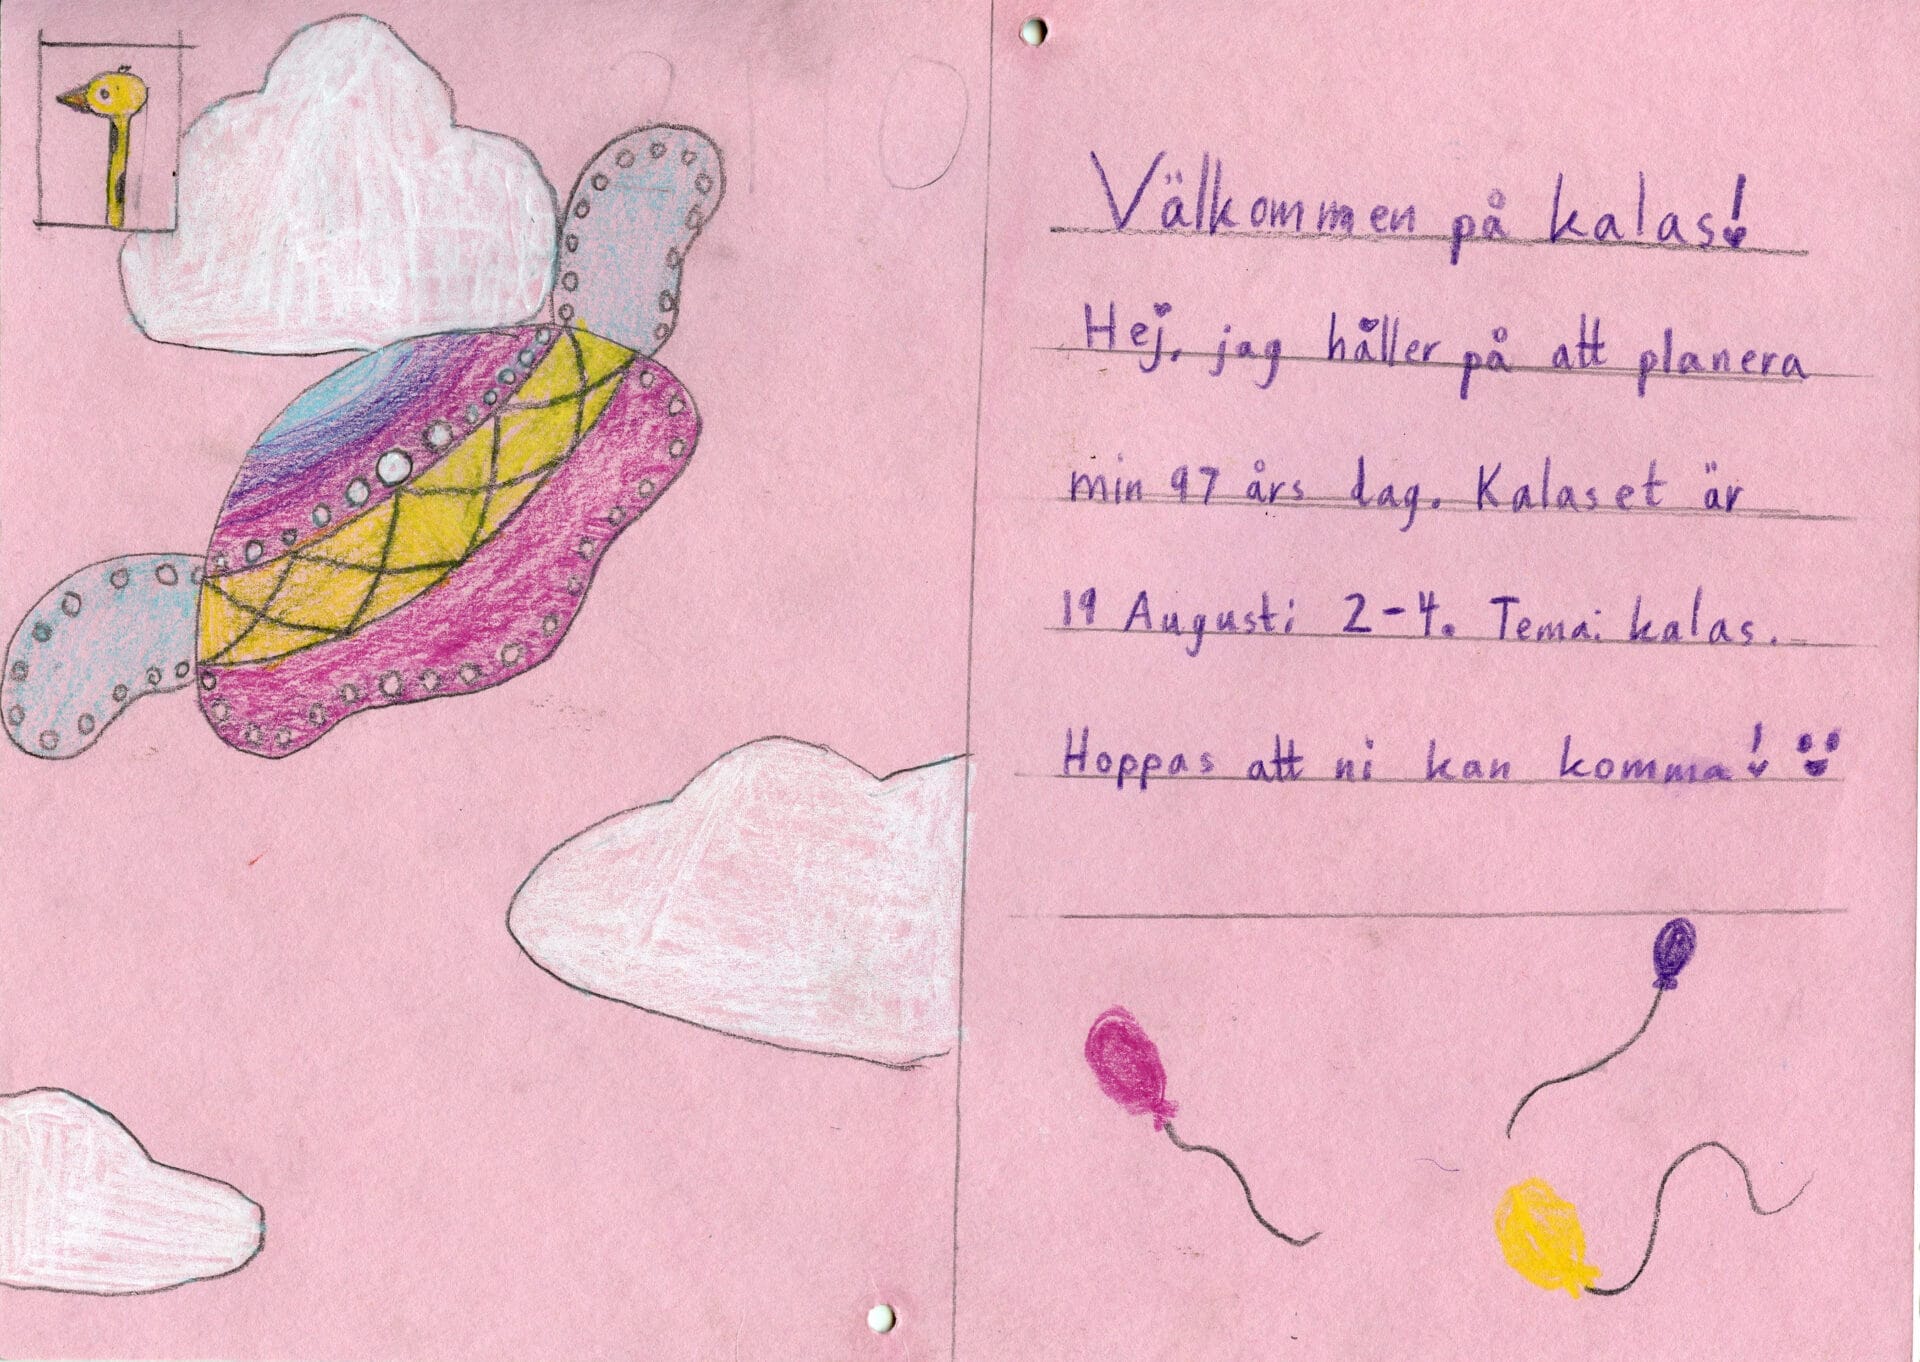 Välkommen på kalas!
Hej, jag håller på att planera
min 97 års dag. Kalaset är
19 Augusti 2-4. Tema: kalas.
Hoppas att ni kan komma!